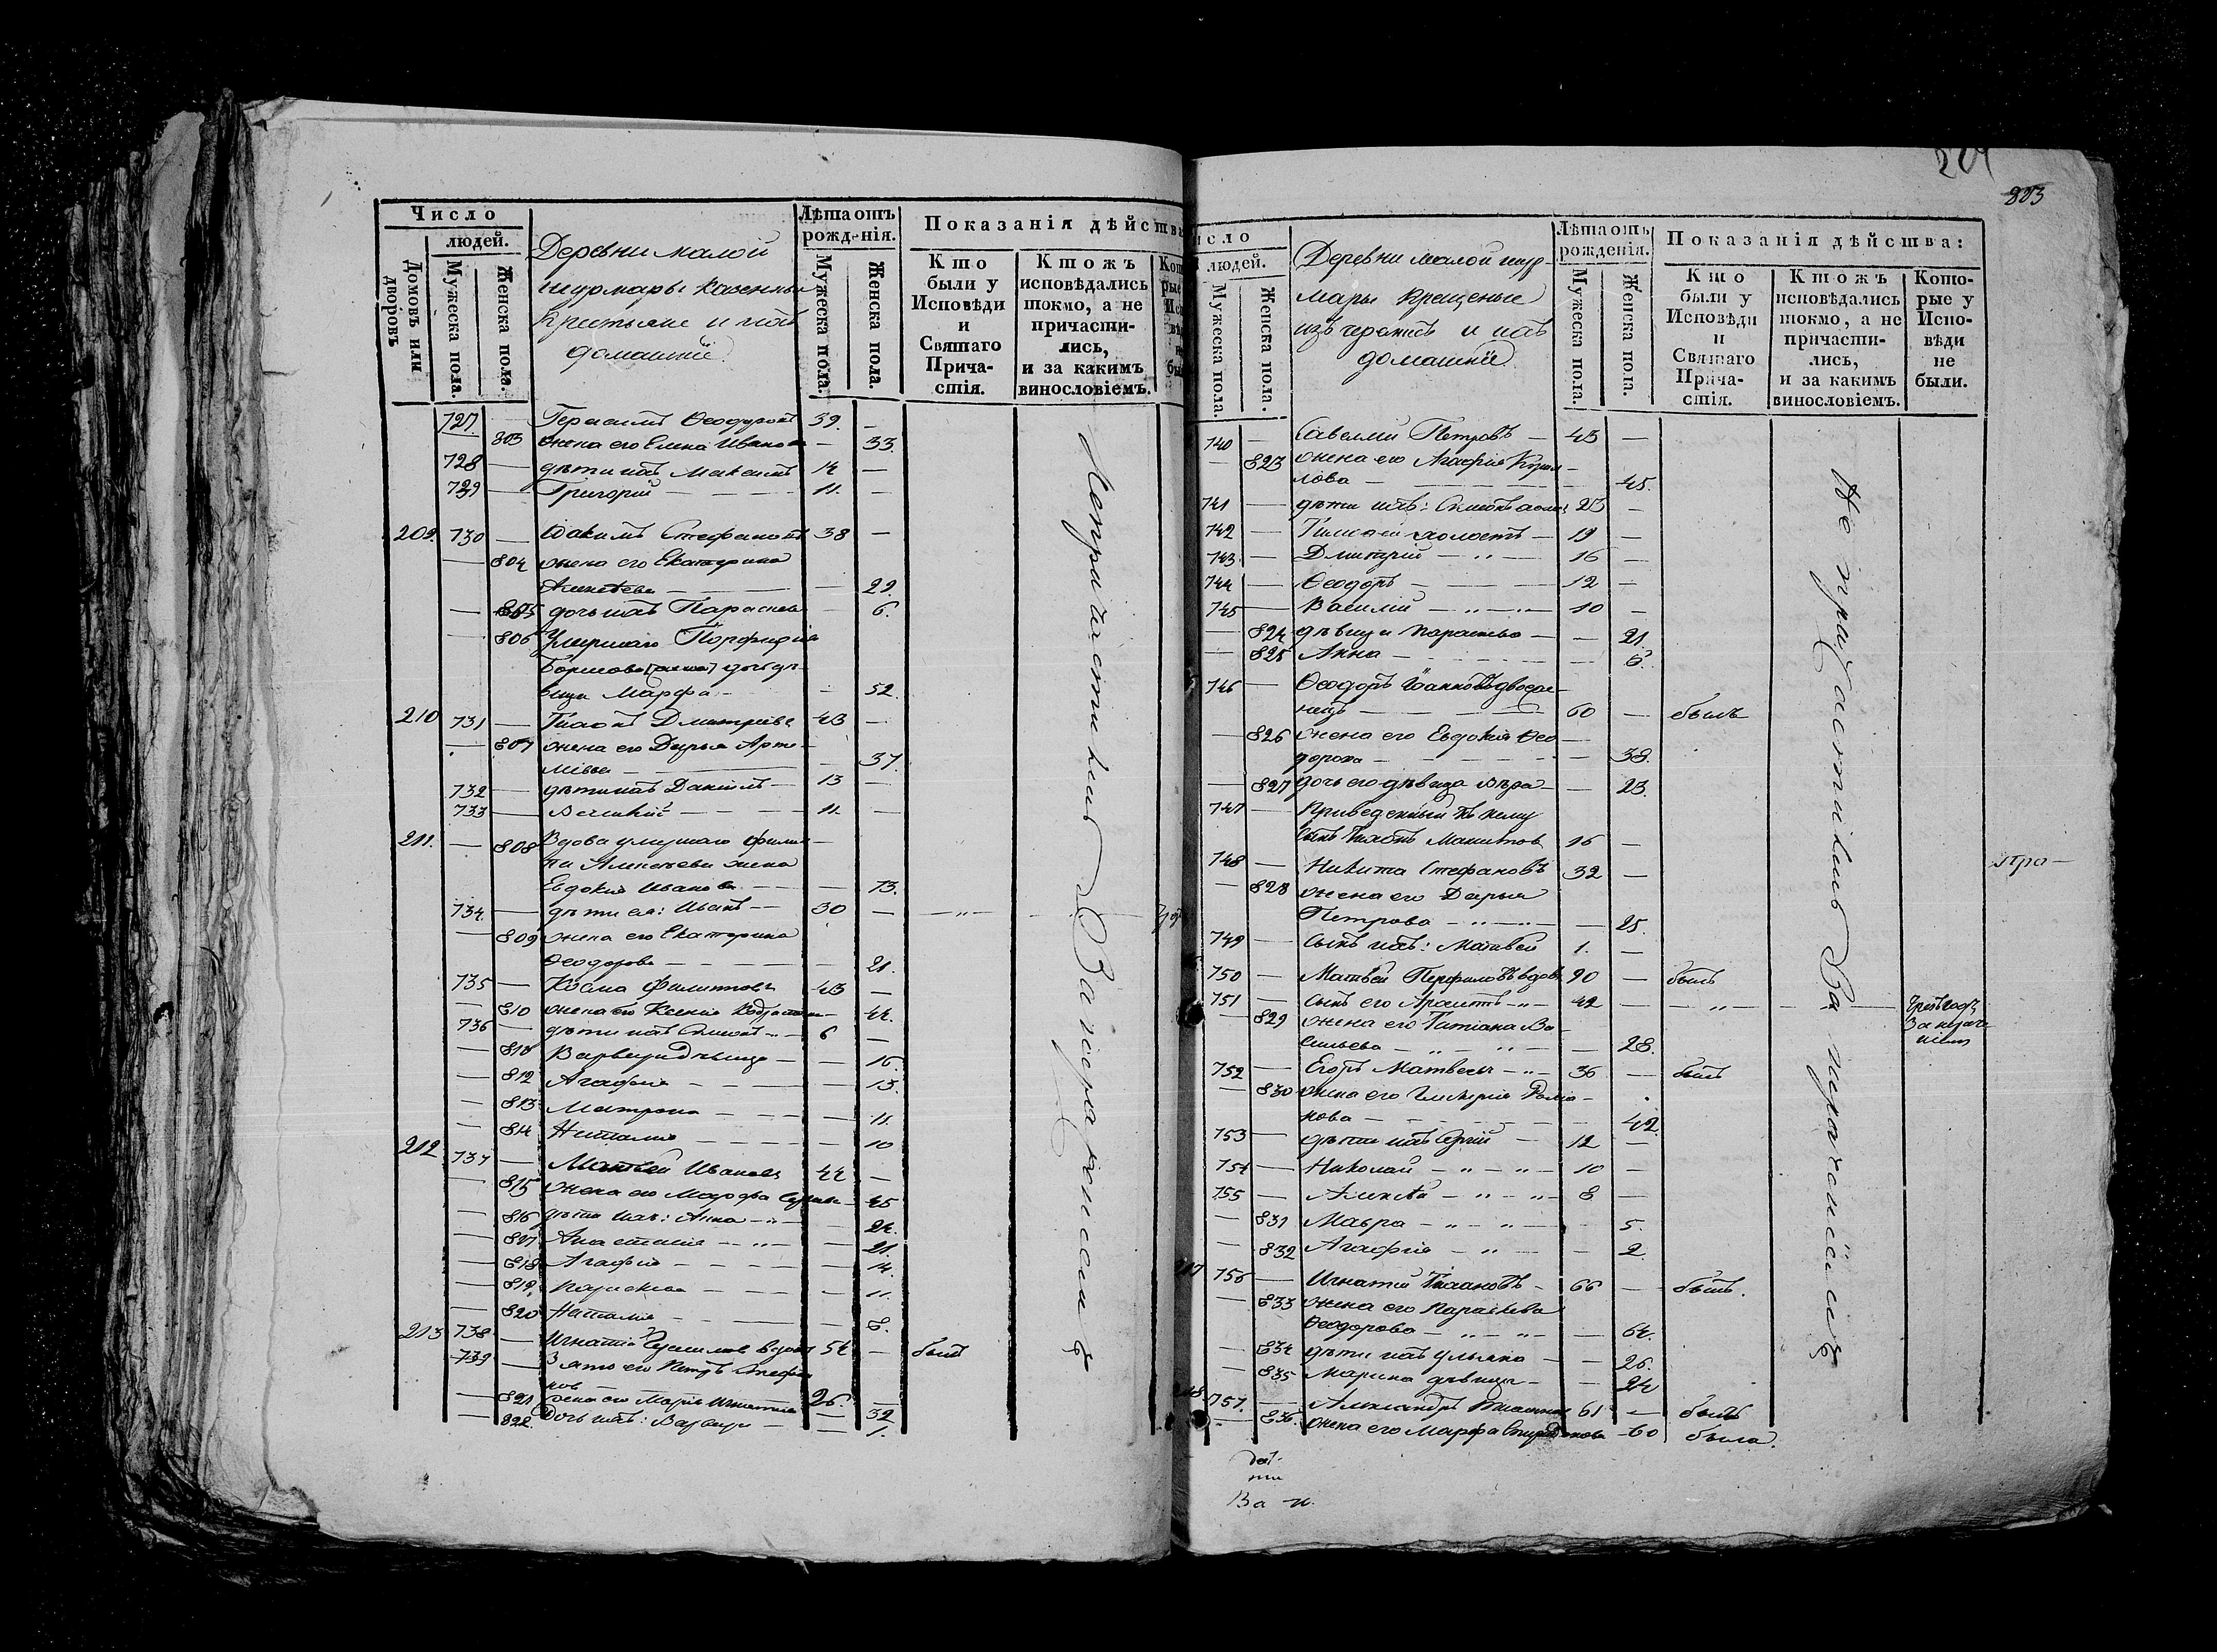 Число
людей.
Домовъ или дворовъ
Мужеска пола.
Женска пола.
Деревни малой
шурмары казенныя
крестьяне и ихъ
домашніе.
Лѣта отъ
рожденія.
Мужеска пола.
Женска пола.
Показанія дѣйства
Кто
были у
Исповѣди
и
Святаго
Прича-
стія.
Ктожъ
исповѣдались
токмо, а не
причасти-
лись,
и за какимъ
винословіемъ.
727 — Герасимъ Ѳеодоровъ 39. —
803 жена его Елена Иванова — 33.
728 — дѣти ихъ Максимъ 14 —
729 — Григорій — 11. —
209. 730 — Іоакимъ Стефановъ 38 —
— 804 жена его Екатерина
Алексѣева — 29.
— 805 дочь ихъ Параскева — 6.
— 806 Умершаго Порфирія
дочь дѣ-
вица Марфа — 52.
210 731 — Дмитріевъ 43 —
— 807 жена его Дарья Арте-
міева — 37.
732 — дѣти ихъ Даніилъ — 13 —
733 — Василій — 11. —
211. — 808 Вдова умершаго Филип-
па Алексѣева жена
Евдокія Иванова — 73.
734. — дѣти ея: Иванъ — 30 —
— 809 жена его Екатерина
Ѳеодорова — 21.
735 — Козма Филипповъ 43 —
— 810 жена его Ксенія — 44.
736 — дѣти ихъ Симеонъ 6 —
— 811 Варвара дѣвица — 16.
— 812 Агафія — 13.
— 813 Матрона — 11.
— 814 Наталія — 10
212 737 — Матвей Ивановъ 44 —
— 815 жена его Марфа — 45
— 816 дѣти ихъ: Анна — 24.
— 817 Анастасія — 21.
— 818 Агафія — 14.
— 819. Параскева — 11.
— 820 Наталія — 8.
213 738 — Игнатій вдовъ 54 — былъ
739 — Зять его Петръ Стефа-
новъ 26 —
— 821 жена его Марія Игнатіева — 32
— 822. Дочь ихъ: Варвара — 1.
Непричастники За нераченіемъ
204
803
число
людей.
Мужеска пола.
Женска пола.
Деревни малой шур-
мары крещеные
изъ черемисъ и ихъ
домашніе
Лѣта отъ
рожденія.
Мужеска пола.
Женска пола.
Показанія дѣйства:
Кто
были у
Исповѣди
и
Святаго
Прича-
стія.
Ктожъ
исповѣдались
токмо, а не
причасти-
лись,
и за какимъ
винословіемъ.
Кото-
рые у
Испо-
вѣди
не
были.
740 — Савелій Петровъ — 45 —
— 823 жена его Агафія Кирил-
лова — 45.
741 — дѣти ихъ: Симеонъ 23 —
742 — холостъ — 19 —
743. — Дмитрій — 16 —
744 — Ѳеодоръ — 12 —
745 — Василій — 10 —
— 824 дѣвица Параскева — 21.
— 825 Анна — 6.
746 — Ѳеодоръ Іоанновъ двоеже-
нецъ — 60 — былъ
— 826 жена его Евдокія Ѳео-
дорова — 38.
— 827 дочь его дѣвица Вѣра — 23.
747 — Приведенный къ нему
сынъ 16 —
748 — Никита Стефановъ 32 —
— 828 жена его Дарья
Петрова — 25.
749 — сынъ ихъ: Матвей 1. —
750 — Матвей Перфиловъ вдовъ 90 — былъ
751 — сынъ его — 42 —
— 829 жена его Татіана Ва-
сильева — 28.
Чрезъ годъ
За нераче-
ніемъ
752 — Егоръ Матвеевъ — 36 — былъ
— 830 жена его Гликерія Рома-
нова — 42.
753 — дѣти ихъ Сергій — 12 —
754 — Николай — 10 —
755 — Алексѣй — 8 —
— 831 Мавра — 5.
— 832 Агафія — 2
217 756 — Игнатій — 66 — былъ.
— 833 жена его Параскева
Ѳеодорова — 64.
— 834 дѣти ихъ Ульяна — 26.
— 835 Марина дѣвица — 24
218 757. — Александръ 61 — былъ
— 836. жена его Марфа Спиридонова — 60 была.
Не причастники За нераченіемъ
тра —
За н.